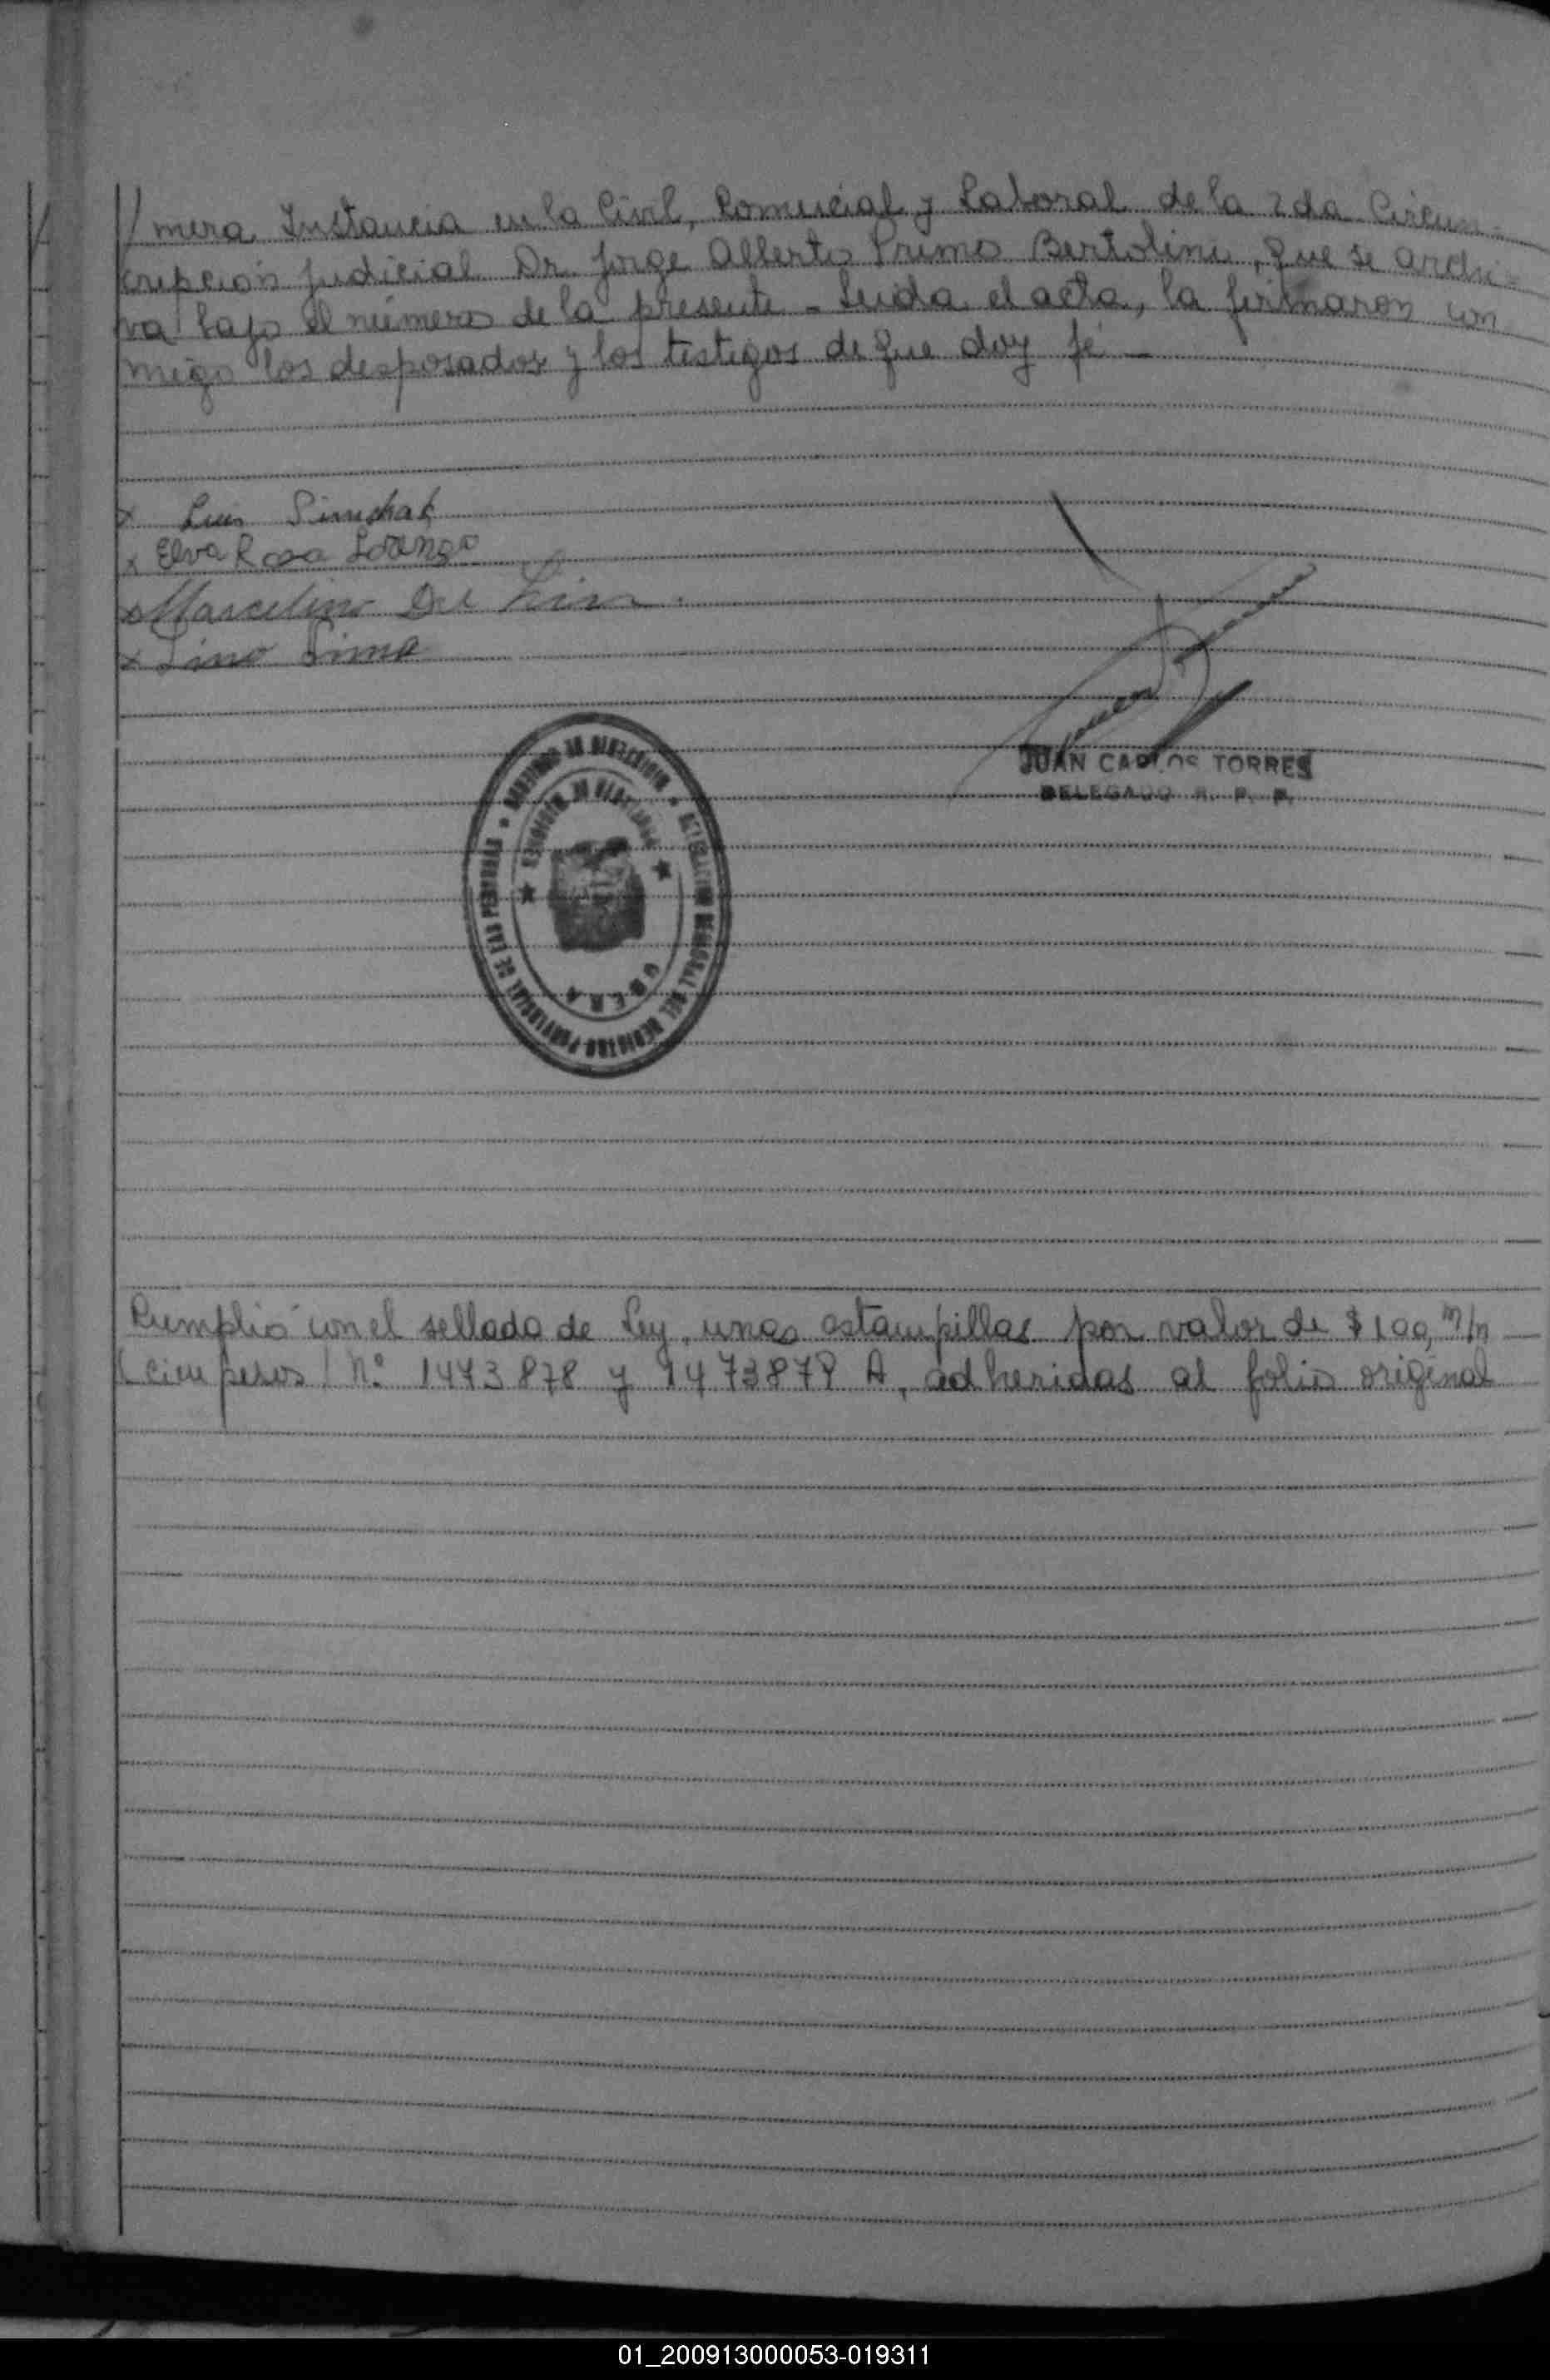 //mera Instancia en lo Civil, Comercial y Laboral de la 2da Circuns-
cripción Judicial Dr. Jorge Alberto Primo Bertolini, que se archi-
va bajo el número de la presente - Leida el acta, la firmaron con
migo los desposados y los testigos de que doy fé -
x Luis
x Elva Rosa Lorenzo
x Marcelino
x Lino
JUAN CARLOS TORRES
DELEGADO R. P. P.
Cumplió con el sellado de Ley, unas estampillas por valor de $ 100, m/n
(cien pesos) Nº 1473878 y 1473879 A, adheridas al folio original
01_200913000053-019311